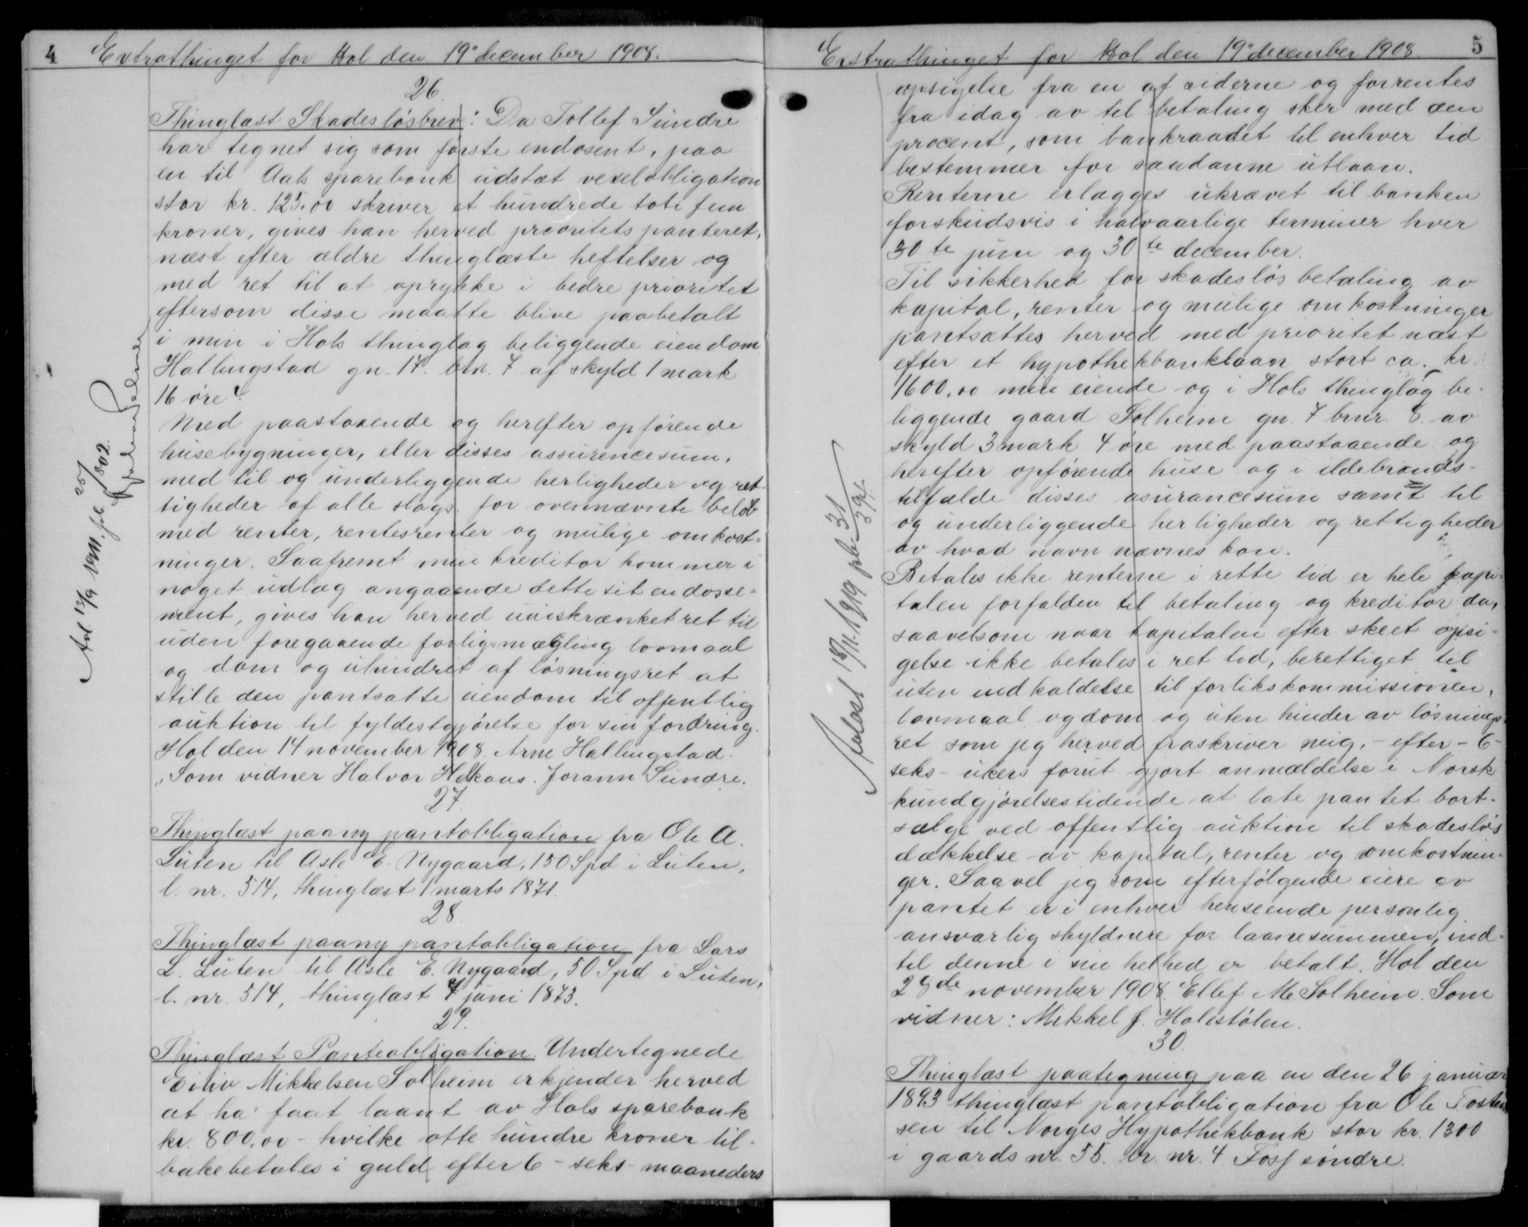 4 Extrathinget for Hol den 19de december 1908.
26
Thinglæst Skadesløsbrev: Da Tollef Sundre
har tegnet sig som første endosent, paa
en til Aals sparebank udstæt vexelobligation
stor kr. 125.00 skriver et hundrede toti fem
kroner, gives han herved prioritets panteret,
næst efter ældre thinglæste heftelser og
med ret til at oprykke i bedre prioritet
eftersom disse maatte blive paabetalt
i min i Hols thinglag beliggende eiendom
Hallingstad gn. 17. bn. 7 af skyld 1 mark
16 øre.
Med paastaaende og herefter opførende
husebygninger, eller disses assurencesum,
med til og underliggende herligheder og ret
tigheder af alle slags, for ovennævnte beløb
med renter, rentesrenter og mulige omkost-
ninger. Saafremt min kreditor kommer i
noget udlæg angaaende dette sit endosse-
ment, gives han herved uinskrænket ret til
uden foregaaende forligsmægling lovmaal
og dom og uhindret af løsningsret at
stille den pantsatte eiendom til offentlig
auktion til fyldestgjørelse for sin fordring.
Hol den 14 november 1908 Arne Hallingstad.
Som vidner Halvor Jorann Sundre.
27.
Thinglæst paany pantobligation fra Ole A.
Luten til Asle E. Nygaard, 150 Spd i Luten,
l. nr. 514, thinglæst 1 marts 1871.
28
Thinglæst paany pantobligation fra Lars
L. Luten til Asle E. Nygaard, 50 Spd i Luten,
l. nr. 514, thinglæst 4 juni 1873.
29.
Thinglæst Panteobligation Undertegnede
Eiliv Mikkelsen Solheim erkjender herved
at ha faat laant av Hols sparebank
kr. 800.00 - hvilke otte hundre kroner til-
bakebetales i guld efter 6 - seks maaneders
Avl 13/9 1911. fol. 257/802.
Extrathinget for Hol den 19de december 1908. 5
opsigelse fra en af siderne og forrentes
fra idag av til betaling sker med den
procent, som bankraadet til enhver tid
bestemmer for saadanne utlaan.
Renterne erlægges ukrævet til banken
forskudsvis i halvaarlige terminer hver
30te juni og 30te december.
Til sikkerhed for skadesløs betaling av
kapital, renter og mulige omkostninger
pantsættes herved med prioritet næst
efter et hypothekbanklaan stort ca. kr.
1600.00 min eiende og i Hols thinglag be-
liggende gaard Solheim gn. 7 brnr. 8. av
skyld 3 mark 4 øre med paastaaende og
herefter opførende huse og i ildebrands-
tilfælde disses asurancesum samt til
og underliggende herligheder og rettigheder
av hvad navn nævnes kan.
Betales ikke renterne i rette tid er hele kapi-
talen forfalden til betaling og kreditor da,
saavelsom naar kapitalen efter skeet opsi-
gelse ikke betales i ret tid, berettiget til
uten indkaldelse til forlikskommissionen,
lovmaal og dom og uten hinder av løsnings
ret som jeg herved fraskriver mig, - efter - 6 -
seks - ukers forut gjort anmældelse i Norsk
kundgjørelsestidende at late pantet bort-
sælge ved offentlig auktion til skadesløs
dækkelse av kapital, renter og omkostnin-
ger. Saavel jeg som efterfølgende eiere av
pantet er i enhver henseende personlig
ansvarlig skyldnere for laanesummen, ind-
til denne i sin helhed er betalt. Hol den
29de november 1908 Ellef M. Solheim. Som
vidner: Mikkel J. Holestølen.
30.
Thinglæst paategning paa en den 26 januar
1893 thinglæst pantobligation fra Ole Tosten
sen til Norges Hypothekbank stor kr. 1300
i gaards nr. 55. br. nr. 4. Fosf søndre.
Avlæst 18/11-1919 pb. 31/392